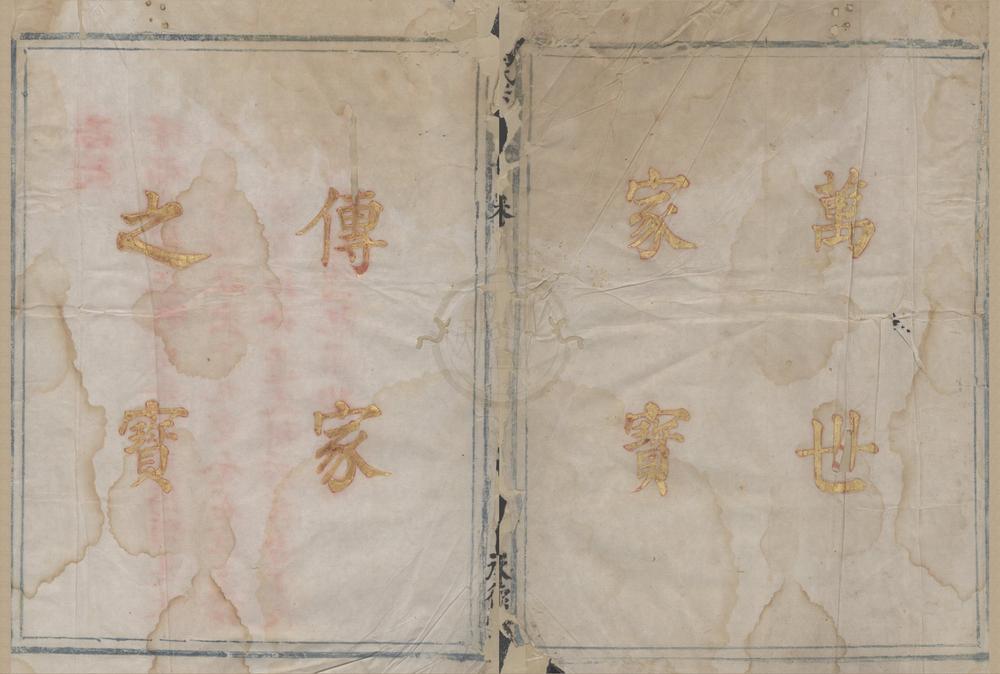 萬世
家寶
傳家
之寶